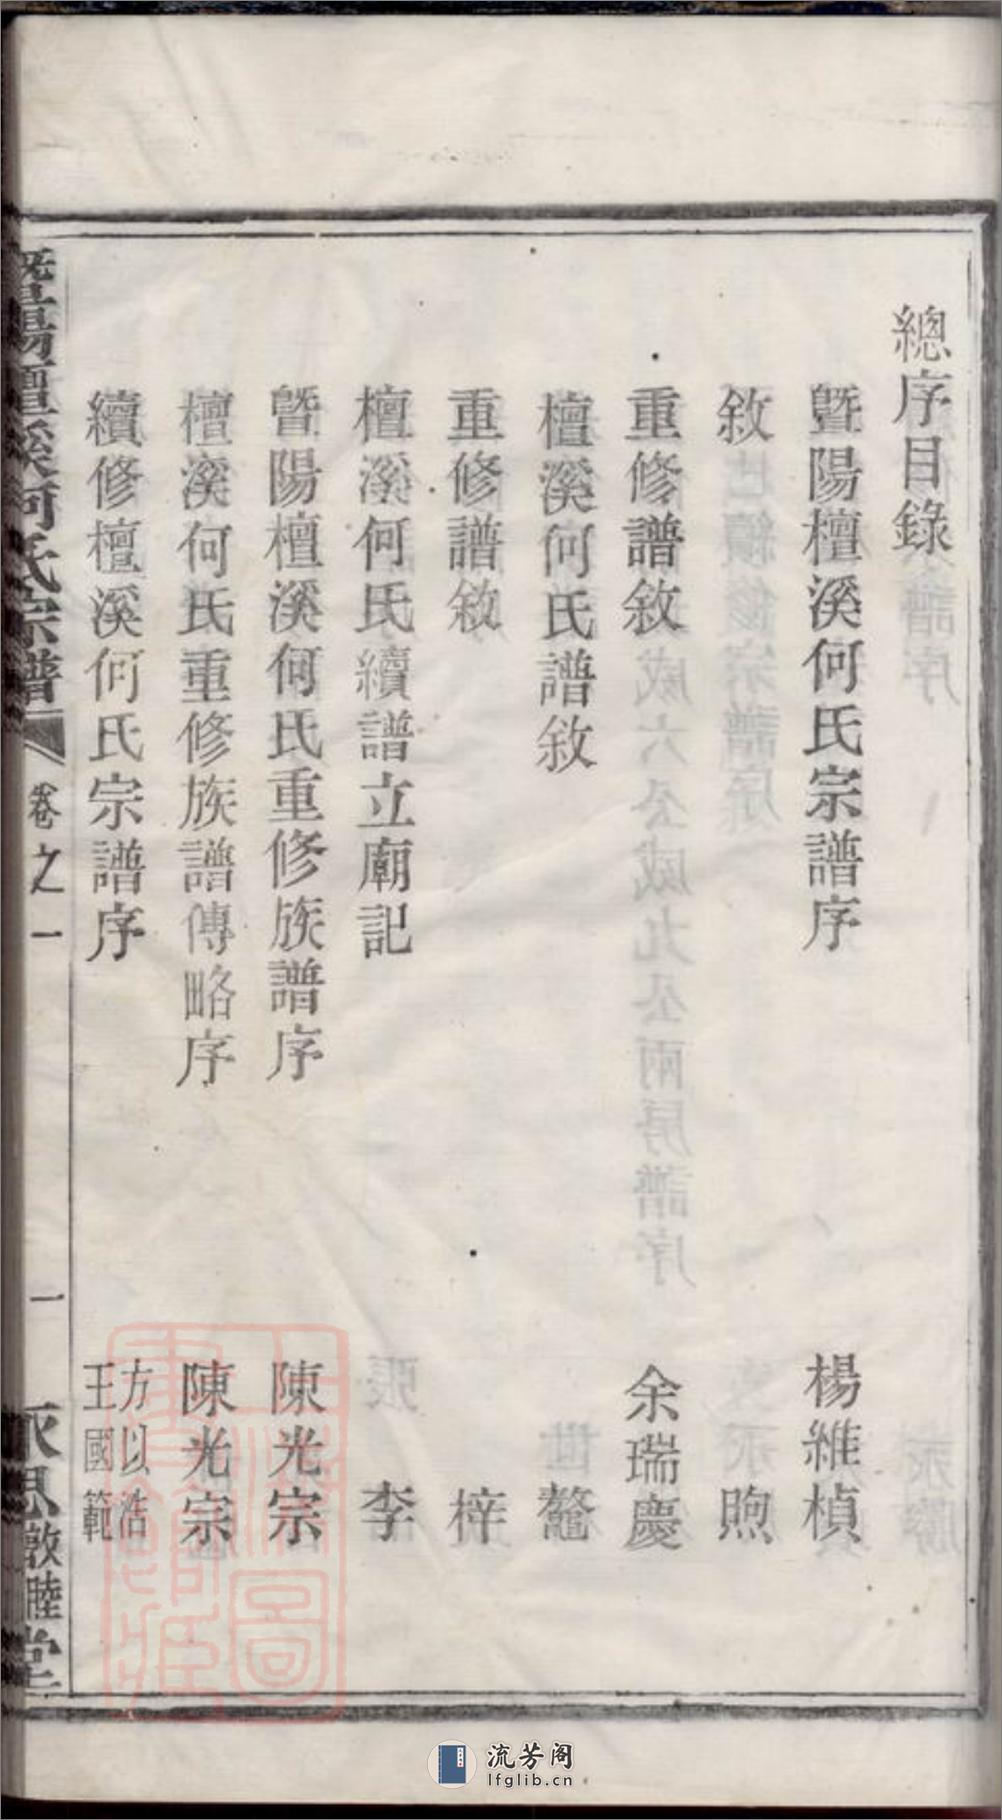 總序目錄
暨陽檀溪何氏宗譜序 楊維楨
敘 煦
重修譜敘 余瑞慶
檀溪何氏譜敘 鼇
重修譜敘 梓
檀溪何氏續譜立廟記 李
暨陽檀溪何氏重修族譜序 陳光宗
檀溪何氏重修族譜傳略序 陳光宗
續修檀溪何氏宗譜序 方以浩 王國範
暨陽檀溪何氏宗譜 卷之一 一 永思敦睦堂
流芳阁
lfglib.cn